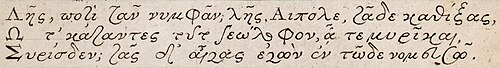 Λῆς, ποτὶ τᾶν νυμφᾶν; λῆς, Αἰπόλε, τᾷδε καθίξας,
Ὡς τὸ κάταντες τοῦτο γεώλοφον, ἅ τε μυρῖκαι,
Συρίσδεν; τὰς δ' αἶγας ἐγὼν ἐν τῷδε νομευσῶ.